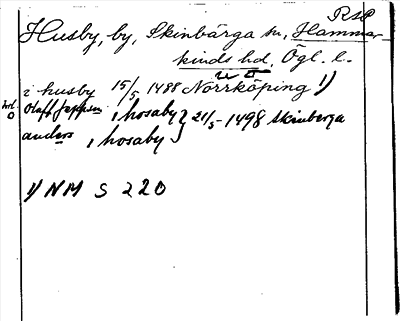 RSP
Husby, by, Skinbärga sn, Hammar-
kinds hd, Ögl. l.
i husby 15/5 1488 Norrköping 1)
Olaff Jeppsen, i hosaby } 21/5 - 1498 Skinberga
anders, i hosaby
1) NM S 220